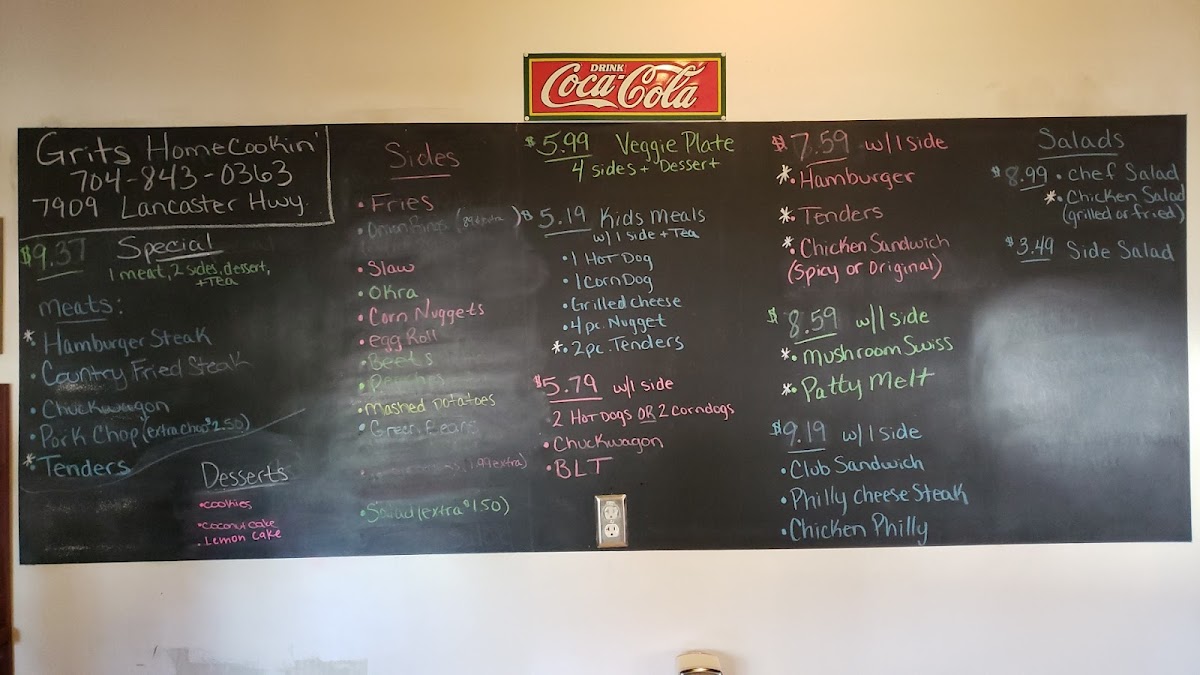 DRINK
Coca-Cola
Grits Homecookin'
704-843-0363
7909 Lancaster Hwy.
$9.37 Special
1 meat, 2 sides, dessert,
+Tea
Meats:
*• Hamburger Steak
• Country Fried Steak
• Chuckwagon
• Pork Chop (extra chop $2.50)
*• Tenders
Desserts
• cookies
• coconut cake
• Lemon cake
Sides
• Fries
• Onion Rings
• Slaw
• Okra
• Corn Nuggets
• egg Roll
• Beets
• Peaches
• mashed potatoes
• Green Beans
1.99 extra)
• Salad (extra $1.50)
$5.99 Veggie Plate
4 sides + Dessert
$5.19 Kids Meals
w/ 1 side + Tea
• 1 Hot Dog
• 1 Corn Dog
• Grilled cheese
• 4 pc. Nugget
*• 2 pc. Tenders
$5.79 w/1 side
• 2 Hot Dogs OR 2 Corndogs
• Chuckwagon
• BLT
$7.59 w/1 side
*• Hamburger
*• Tenders
*• Chicken Sandwich
(Spicy or Original)
$8.59 w/1 side
*• Mushroom Swiss
*• Patty Melt
$9.19 w/1 side
• Club Sandwich
• Philly Cheese Steak
• Chicken Philly
Salads
$8.99 • chef Salad
*• Chicken Salad
(grilled or fried)
$3.49 Side Salad